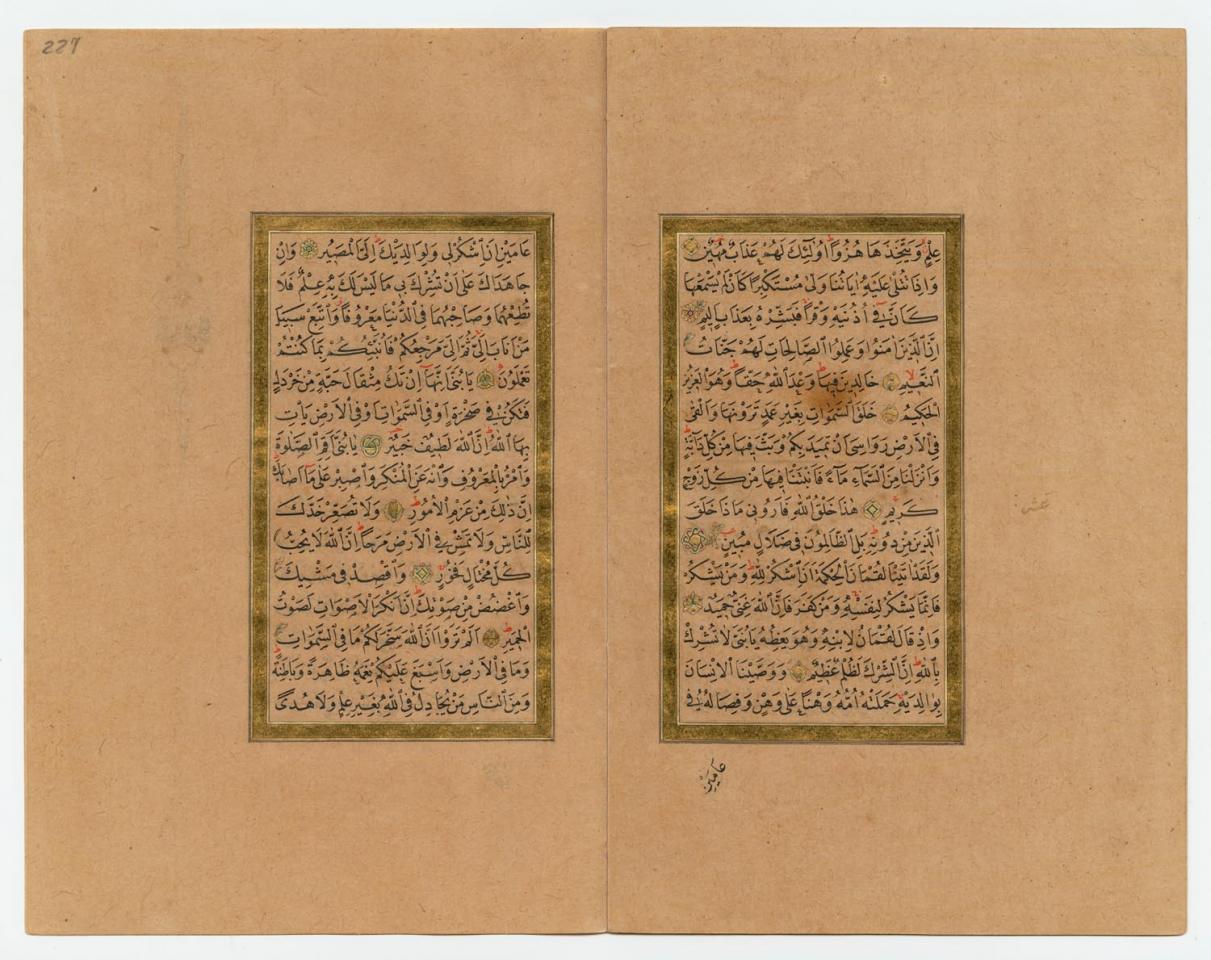 عِلْمٍ وَيَتَّخِذَهَا هُزُوًا اُولٰئِكَ لَهُمْ عَذَابٌ مُهِينٌ
وَاِذَا تُتْلٰى عَلَيْهِ اٰيَاتُنَا وَلّٰى مُسْتَكْبِرًا كَاَنْ لَمْ يَسْمَعْهَا
كَاَنَّ فِى اُذُنَيْهِ وَقْرًا فَبَشِّرْهُ بِعَذَابٍ اَلِيمٍ
اِنَّ الَّذِينَ اٰمَنُوا وَعَمِلُوا الصَّالِحَاتِ لَهُمْ جَنَّاتُ
النَّعِيمِ خَالِدِينَ فِيهَا وَعْدَ اللّٰهِ حَقًّا وَهُوَ الْعَزِيزُ
الْحَكِيمُ خَلَقَ السَّمٰوَاتِ بِغَيْرِ عَمَدٍ تَرَوْنَهَا وَاَلْقٰى
فِى الْاَرْضِ رَوَاسِىَ اَنْ تَمِيدَ بِكُمْ وَبَثَّ فِيهَا مِنْ كُلِّ دَابَّةٍ
وَاَنْزَلْنَا مِنَ السَّمَاءِ مَاءً فَاَنْبَتْنَا فِيهَا مِنْ كُلِّ زَوْجٍ
كَرِيمٍ هٰذَا خَلْقُ اللّٰهِ فَاَرُونِى مَاذَا خَلَقَ
الَّذِينَ مِنْ دُونِهِ بَلِ الظَّالِمُونَ فِى ضَلَالٍ مُبِينٍ
وَلَقَدْ اٰتَيْنَا لُقْمَانَ الْحِكْمَةَ اَنِ اشْكُرْ لِلّٰهِ وَمَنْ يَشْكُرْ
فَاِنَّمَا يَشْكُرُ لِنَفْسِهِ وَمَنْ كَفَرَ فَاِنَّ اللّٰهَ غَنِىٌّ حَمِيدٌ
وَاِذْ قَالَ لُقْمَانُ لِابْنِهِ وَهُوَ يَعِظُهُ يَا بُنَىَّ لَا تُشْرِكْ
بِاللّٰهِ اِنَّ الشِّرْكَ لَظُلْمٌ عَظِيمٌ وَوَصَّيْنَا الْاِنْسَانَ
بِوَالِدَيْهِ حَمَلَتْهُ اُمُّهُ وَهْنًا عَلٰى وَهْنٍ وَفِصَالُهُ فِى
عَامَيْنِ
عَامَيْنِ اَنِ اشْكُرْ لِى وَلِوَالِدَيْكَ اِلَىَّ الْمَصِيرُ وَاِنْ
جَاهَدَاكَ عَلٰى اَنْ تُشْرِكَ بِى مَا لَيْسَ لَكَ بِهِ عِلْمٌ فَلَا
تُطِعْهُمَا وَصَاحِبْهُمَا فِى الدُّنْيَا مَعْرُوفًا وَاتَّبِعْ سَبِيلَ
مَنْ اَنَابَ اِلَىَّ ثُمَّ اِلَىَّ مَرْجِعُكُمْ فَاُنَبِّئُكُمْ بِمَا كُنْتُمْ
تَعْمَلُونَ يَا بُنَىَّ اِنَّهَا اِنْ تَكُ مِثْقَالَ حَبَّةٍ مِنْ خَرْدَلٍ
فَتَكُنْ فِى صَخْرَةٍ اَوْ فِى السَّمٰوَاتِ اَوْ فِى الْاَرْضِ يَأْتِ
بِهَا اللّٰهُ اِنَّ اللّٰهَ لَطِيفٌ خَبِيرٌ يَا بُنَىَّ اَقِمِ الصَّلٰوةَ
وَأْمُرْ بِالْمَعْرُوفِ وَانْهَ عَنِ الْمُنْكَرِ وَاصْبِرْ عَلٰى مَا اَصَابَكَ
اِنَّ ذٰلِكَ مِنْ عَزْمِ الْاُمُورِ وَلَا تُصَعِّرْ خَدَّكَ
لِلنَّاسِ وَلَا تَمْشِ فِى الْاَرْضِ مَرَحًا اِنَّ اللّٰهَ لَا يُحِبُّ
كُلَّ مُخْتَالٍ فَخُورٍ وَاقْصِدْ فِى مَشْيِكَ
وَاغْضُضْ مِنْ صَوْتِكَ اِنَّ اَنْكَرَ الْاَصْوَاتِ لَصَوْتُ
الْحَمِيرِ اَلَمْ تَرَوْا اَنَّ اللّٰهَ سَخَّرَ لَكُمْ مَا فِى السَّمٰوَاتِ
وَمَا فِى الْاَرْضِ وَاَسْبَغَ عَلَيْكُمْ نِعَمَهُ ظَاهِرَةً وَبَاطِنَةً
وَمِنَ النَّاسِ مَنْ يُجَادِلُ فِى اللّٰهِ بِغَيْرِ عِلْمٍ وَلَا هُدًى
227